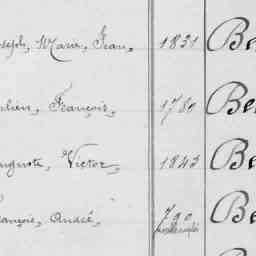 oseph, Marie, Jean, 1831 Be
ulien, François, 1780 Be
uguste, Victor, 1843 Be
rançois, André, 790 Be